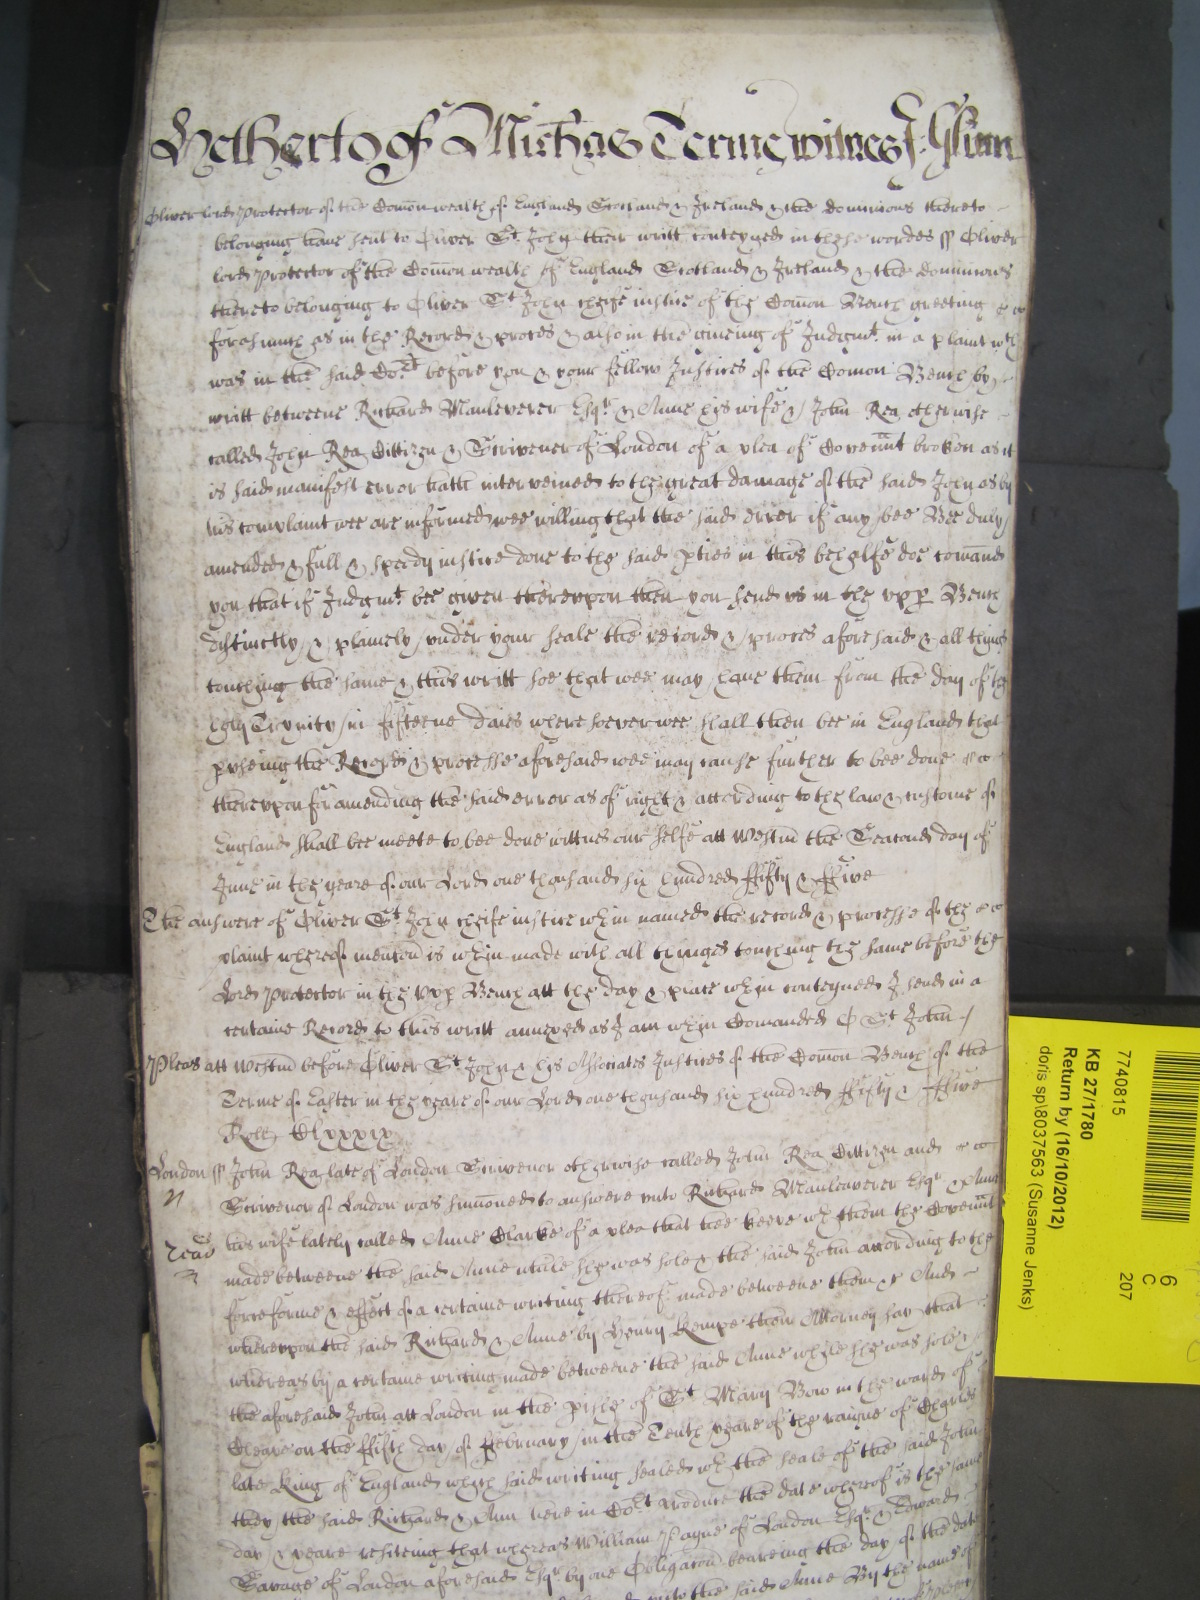 Hetherto of Michas Terme witnes J: Glynn
Oliver lord Protector of the Com̄on wealth of England Scotland & Ireland & the dominions thereto
belonging haue sent to Oliver St John their writt conteyned in these wordes ss Oliver
lord Protector of the Com̄on wealth of England Scotland & Ireland & the dominions
thereto belonging to Oliver St John cheife iustice of the Com̄on Bench greeting
forasmuch as in the Record & proces & also in the giueing of Judgmt in a plaint wch
was in the said Cort before you & your fellow Justices of the Com̄on Bench by
writt betweene Richard Mauleverer Esqr & Anne his wife & John Rea otherwise
called John Rea Cittizen & Scrivener of London of a plea of Covennt broken as it
is said manifest error hath interveined to the great damage of the said John as by
his complaint wee are informed wee willing that the said error if any bee Bee duly
amended & full & speedy iustice done to the said pties in this behalfe doe com̄and
you that if Judgmt bee given therevpon then you send vs in the vpp Bench
distinctly & plainely vnder your seale the record & proces aforesaid & all things
touching the same & this writt soe that wee may haue them from the day of the
holy Trynity in fifteene daies wheresoever wee shall then bee in England that
pvseing the Record & processe aforesaid wee may cause further to bee done
therevpon for amending the said error as of right & according to the law & custome of
England shall bee meete to bee done wittnes our selfe att Westm̄ the Seacond day of
June in the yeare of our Lord one thousand six hundred ffifty & ffive
The answere of Oliver St John cheife iustice wthin named the record & processe of the
plaint whereof mencōn is wthin made with all thinges touching the same before the
Lord Protector in the vpp Bench att the day & place wthin conteyned I send in a
certaine Record to this writt annexed as I am wthin Com̄anded O St John
Pleas att Westm̄ before Oliver St John & his Associates Justices of the Com̄on Bench of the
Terme of Easter in the yeare of our Lord one thousand six hundred ffifty & ffive
Roll Clxxxix
London ss John Rea late of London Scrivenor otherwise called John Rea Cittizen and
Scrivenor of London was sum̄oned to answere vnto Richard Mauleaverer Esqr & Anne
his wife lately called Anne Clarke of a plea that hee keepe wth them the Covennt
made betweene the said Anne while she was sole & the said John according to the
force forme & effect of a certaine writing thereof made betweene them &c And
wherevpon the said Richard & Anne by Henry Kempe their Attorney say that
whereas by a certaine writing made betweene the said Anne while she was sole &
the aforesaid John att London in the pishe of St Mary Bow in the ward of
Cheape on the ffifth day of ffebruary in the Tenth yeare of the raigne of Charles
late King of England which said writing sealed wth the seale of the said John
they the said Richard & Ann here in Cort produce the date whereof is the same
day & yeare resiteing that whereas William Payne of London Esqr & Edward
Savage of London aforesaid Esqr by one Obligacōn beareing the day of the date
vnto the said Anne By the name of
7740815
KB 27/1780
Return by (16/10/2012)
doris sp\8037563 (Susanne Jenks)
6
C
207